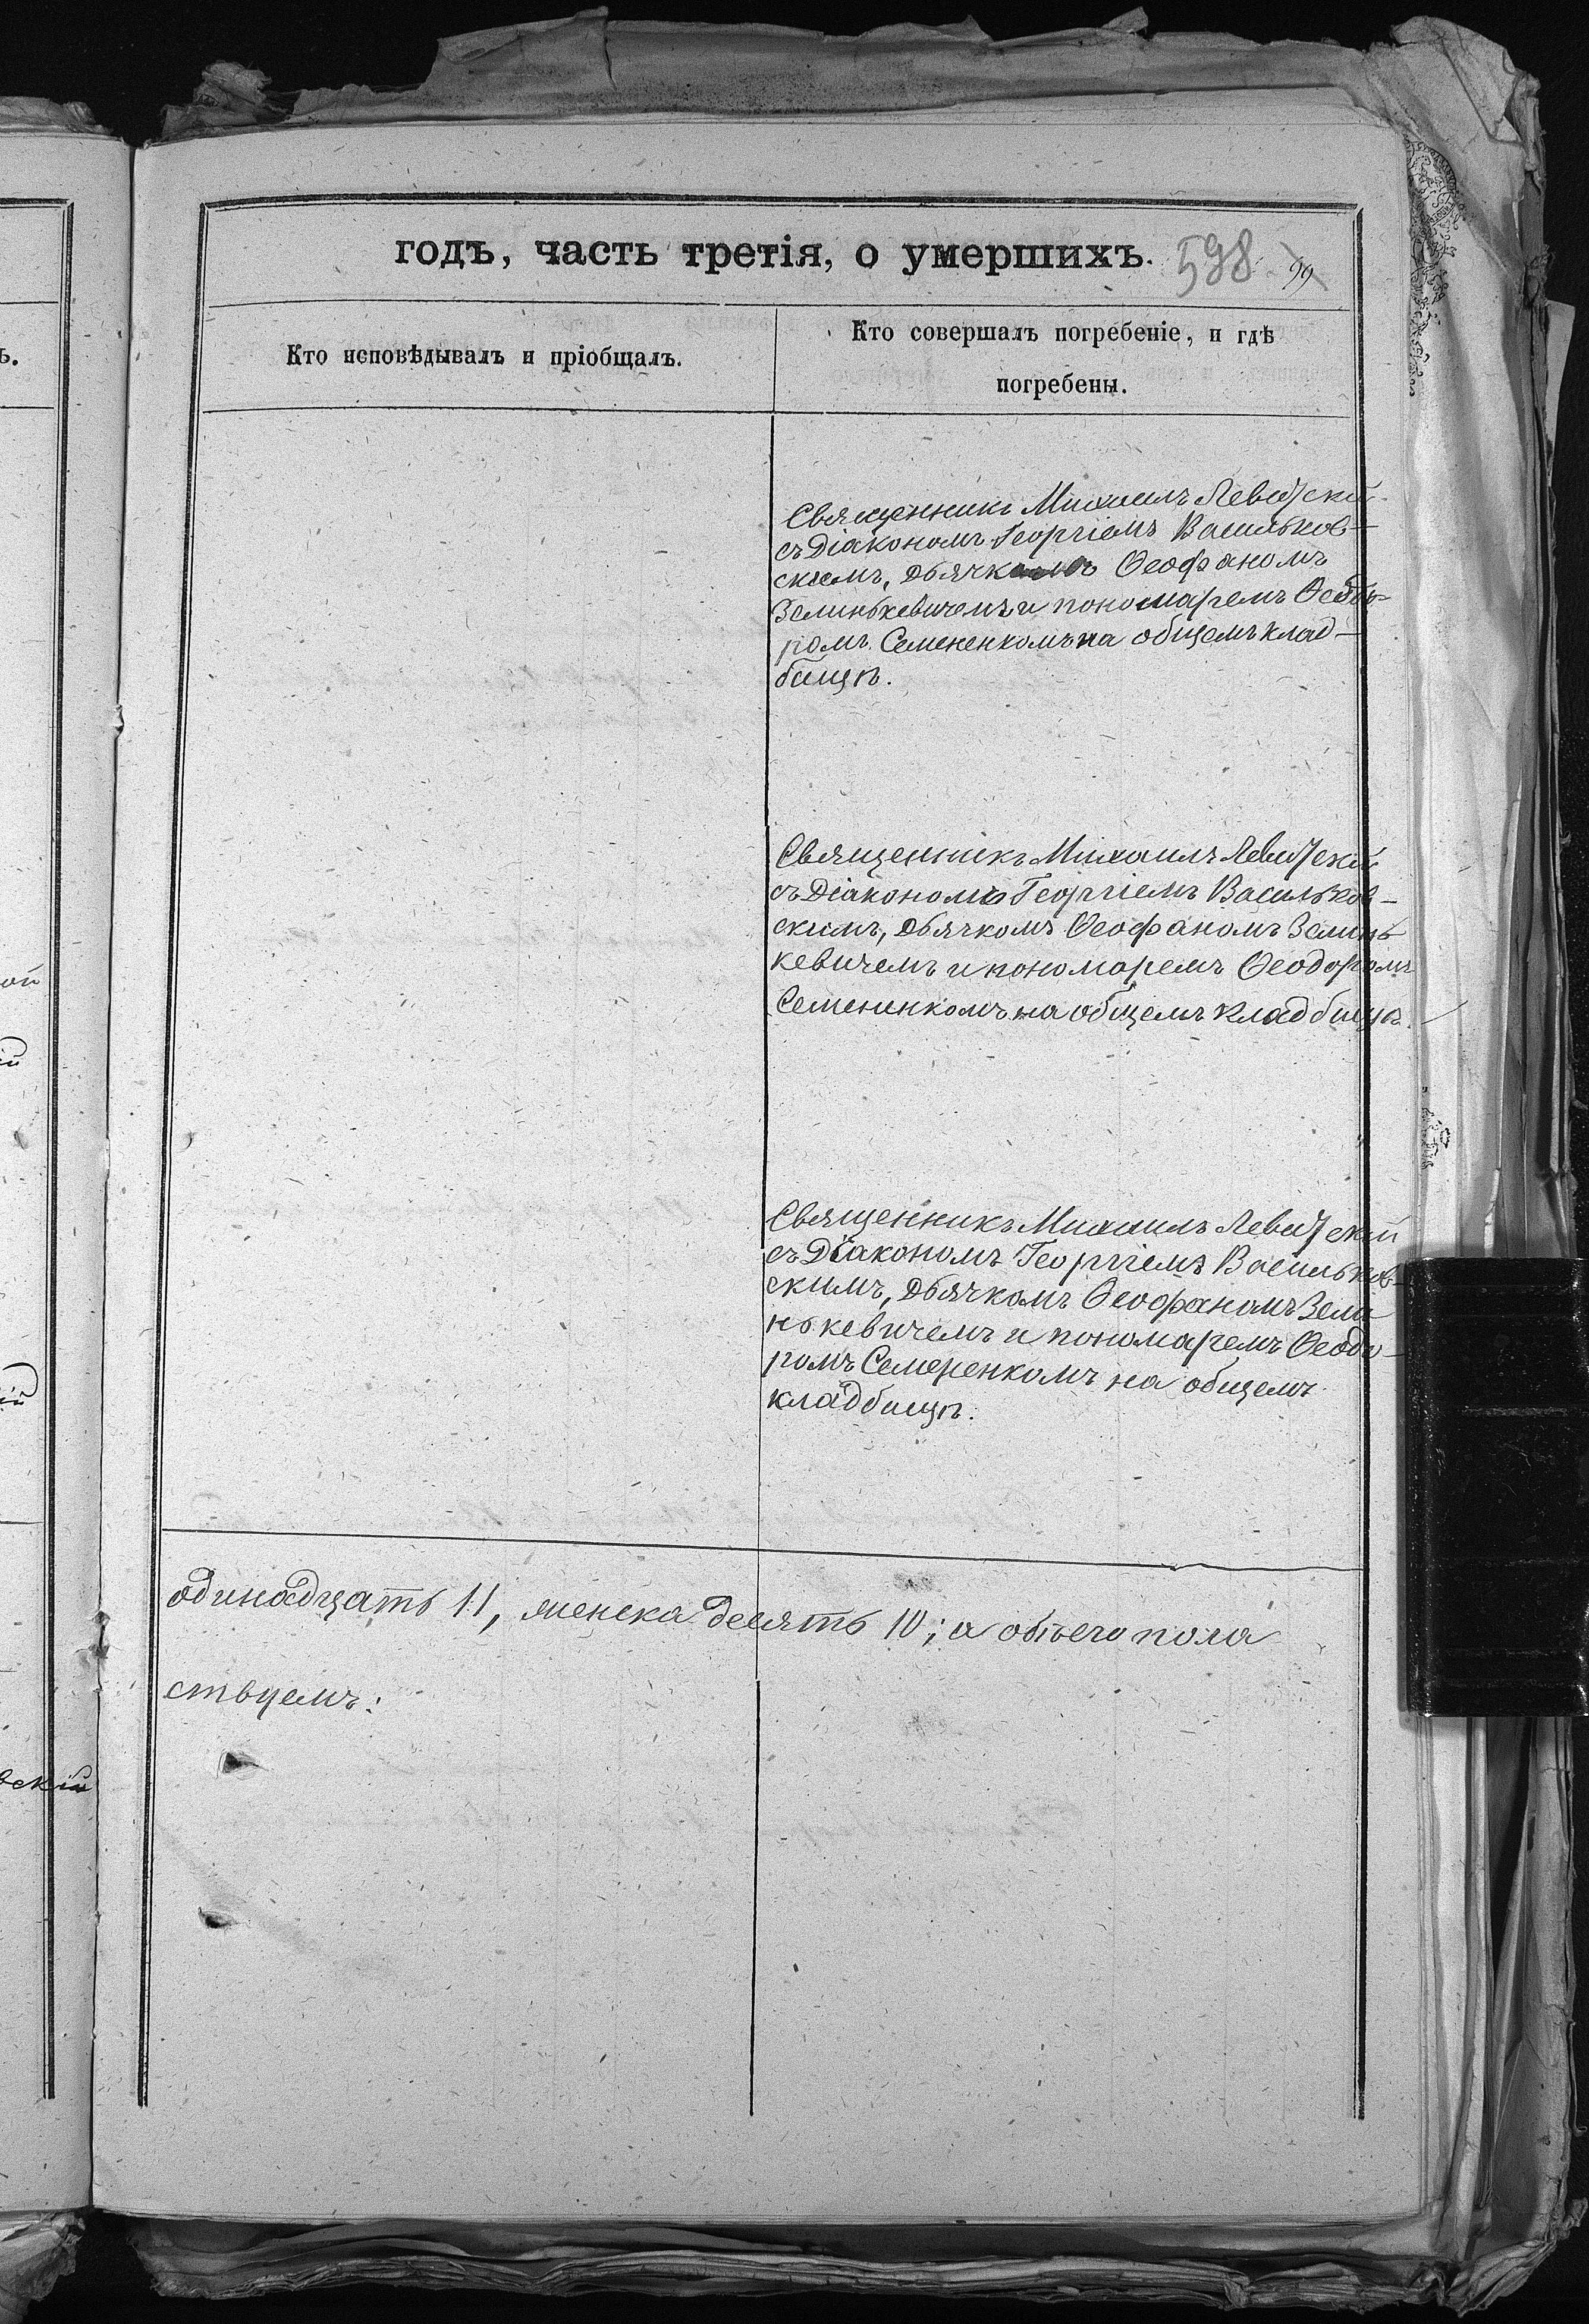 годъ, часть третія, о умершихъ. 598 99
Кто исповѣдывалъ и пріобщалъ.
Кто совершалъ погребеніе, и гдѣ
погребены.
Священникъ Михаилъ Левитскій
съ Діакономъ Георгіемъ Васильков-
скимъ, дьячкомъ Ѳеофаномъ
Зелинькевичемъ и пономаремъ Ѳеодо-
ромъ Семененкомъ на общемъ клад-
бищѣ.
Священникъ Михаилъ Левитскій
съ Діакономъ Георгіемъ Васильков-
скимъ, дьячкомъ Ѳеофаномъ Зелинь
кевичемъ и пономаремъ Ѳеодоромъ
Семененкомъ на общемъ кладбищѣ.
Священникъ Михаилъ Левитскій
съ Діакономъ Георгіемъ Васильков-
скимъ, дьячкомъ Ѳеофаномъ Зели
нькевичемъ и пономаремъ Ѳеодо-
ромъ Семеренкомъ на общемъ
кладбищѣ.
одинадцать 11, женска десять 10; а обоего пола
ствуемъ:
ъ.
ой
ій
ій
вскій